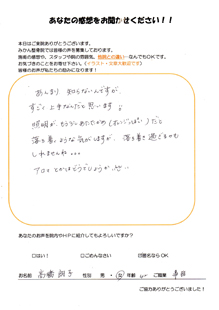 あなたの感想をお聞かせください！！
本日はご来院ありがとうございます。
みかん整骨院では皆様の声を募集しております。
施術の感想や、スタッフや院の雰囲気、他院との違い…なんでもOKです。
お気づきのことをお寄せ下さい。(イラスト・文章大歓迎です)
皆様のお声が私たちの励みになります！
あんまり 知らないんですが、
すごく上手なんだと思います！
照明が、もう少しあたたかめ(オレンジっぽい)だと
落ち着くような気がしますが、落ち着き過ぎるのも
しれませんね…
アロマとかはどうでしょうか…
あなたのお声を院内やHPに紹介してもよろしいですか？
□はい！ □ごめんなさい □匿名ならOK
お名前 高橋 性別 男・女 年齢 ご職業 事務
ご協力ありがとうございました！